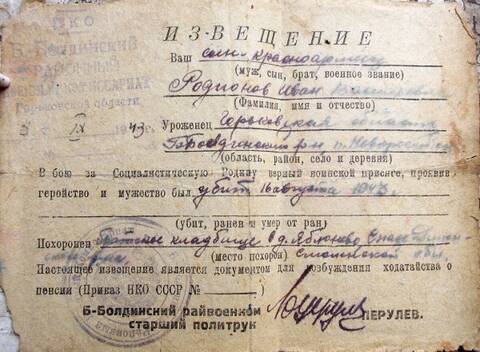 НКО
Б-Болдинский
РАЙОННЫЙ
ВОЕННЫЙ КОМИССАРИАТ
Горьковской области
IX 1943 г.
ИЗВЕЩЕНИЕ
Ваш сын красноармеец
(муж, сын, брат, военное звание)
Родионов Иван
(Фамилия, имя и отчество)
Уроженец Горьковская область
Б-Болдинский р-н
(область, район, село и деревня)
В бою за Социалистическую Родину верный воинской присяге, проявив
геройство и мужество был убит 16 августа 1943 г.
(убит, ранен и умер от ран)
Похоронен братское кладбище д. Яблоково Спас-Демен
(место похорон) Смоленской обл.
Настоящее извещение является документом для возбуждения ходатайства о
пенсии (Приказ НКО СССР №      )
Б-Болдинский райвоенком
старший политрук ПЕРУЛЕВ.